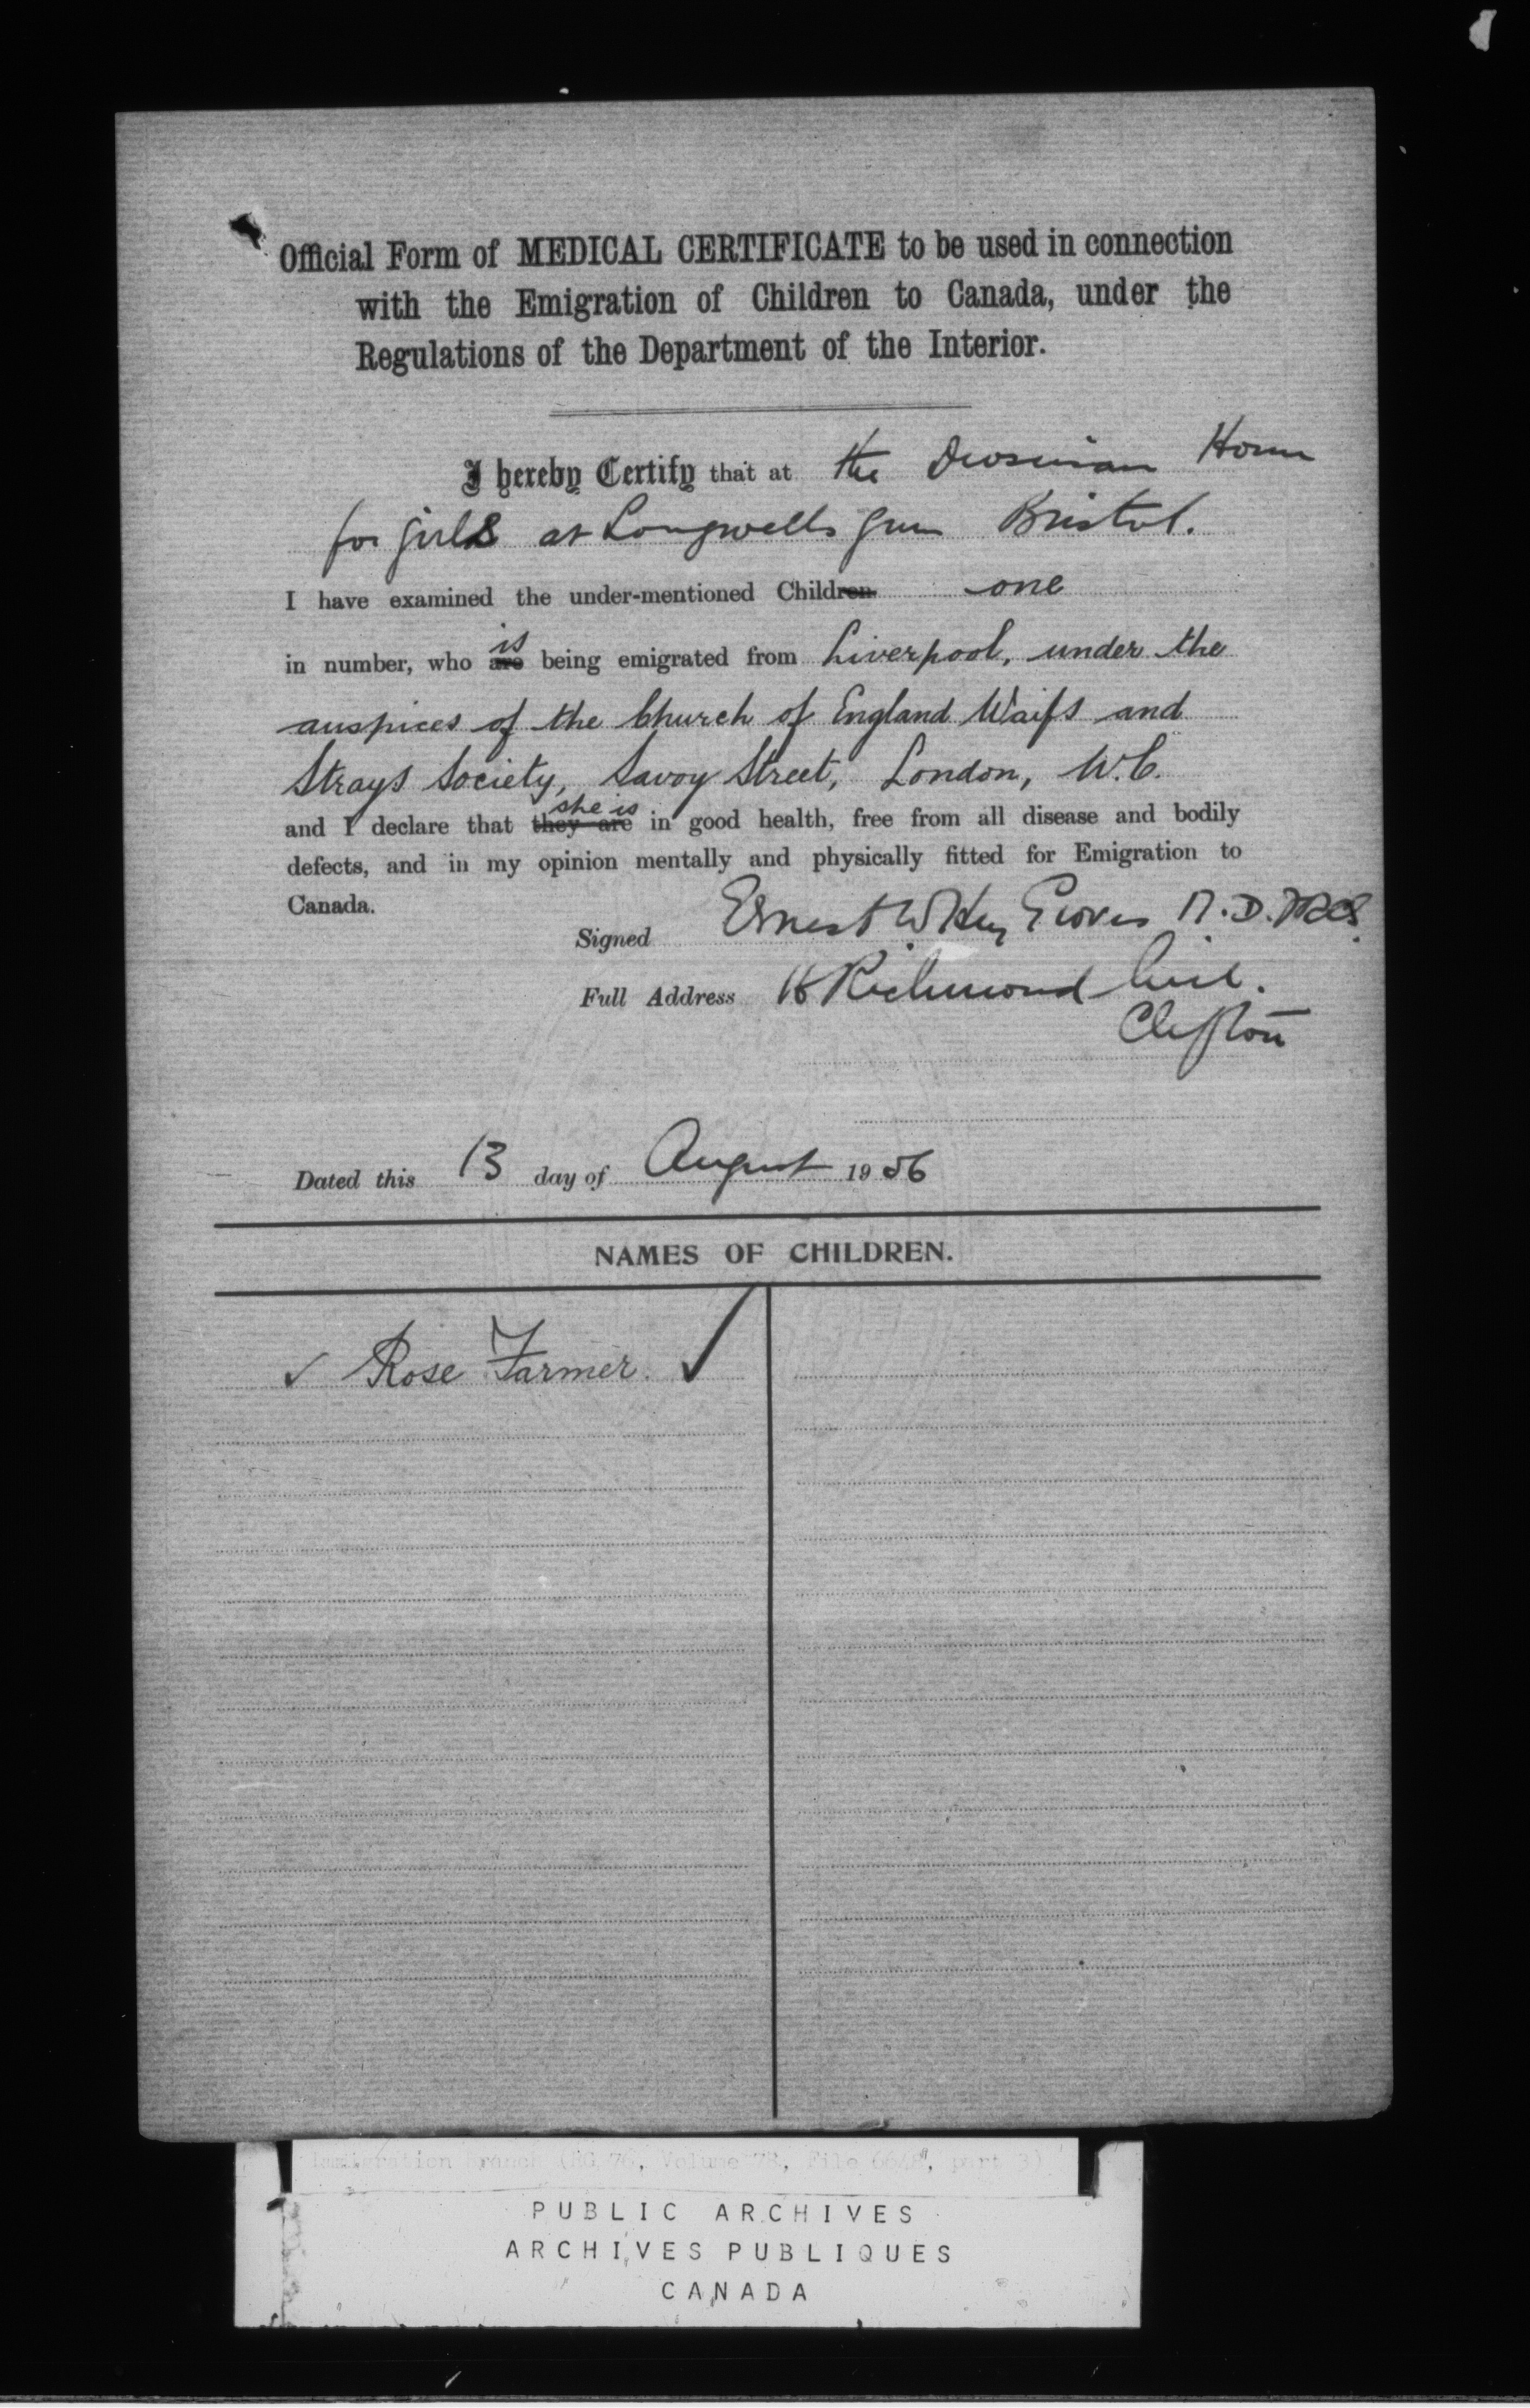 Official Form of MEDICAL CERTIFICATE to be used in connection
with the Emigration of Children to Canada, under the
Regulations of the Department of the Interior.
I hereby Certify that at the Diocesan Home
for girls at Longwells Green Bristol.
I have examined the under-mentioned Children one
is
in number, who are being emigrated from Liverpool, under the
auspices of the Church of England Waifs and
Strays Society, Savoy Street, London, W.C.
she is
and I declare that they are in good health, free from all disease and bodily
defects, and in my opinion mentally and physically fitted for Emigration to
Canada.
Signed Ernest W Hey Groves M.D.
Full Address Richmond Hill.
Clifton
Dated this 13 day of August 1906
NAMES OF CHILDREN.
✓ Rose Farmer. ✓
Immigration Branch (RG 76, Volume 78, File 6648, part 3)
PUBLIC ARCHIVES
ARCHIVES PUBLIQUES
CANADA